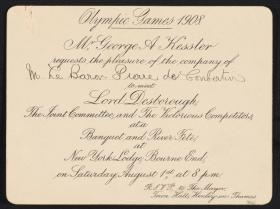 Olympic Games 1908
Mr. George A Kessler
requests the pleasure of the company of
M. Le Baron Pierre de Coubertin
to meet
Lord Desborough,
The Joint Committee, and The Victorious Competitors,
at a
Banquet and River Fete,
at
New York Lodge, Bourne End,
on Saturday August 1st at 8 p.m.
R.S.V.P. to The Mayor,
Town Hall, Henley-on-Thames